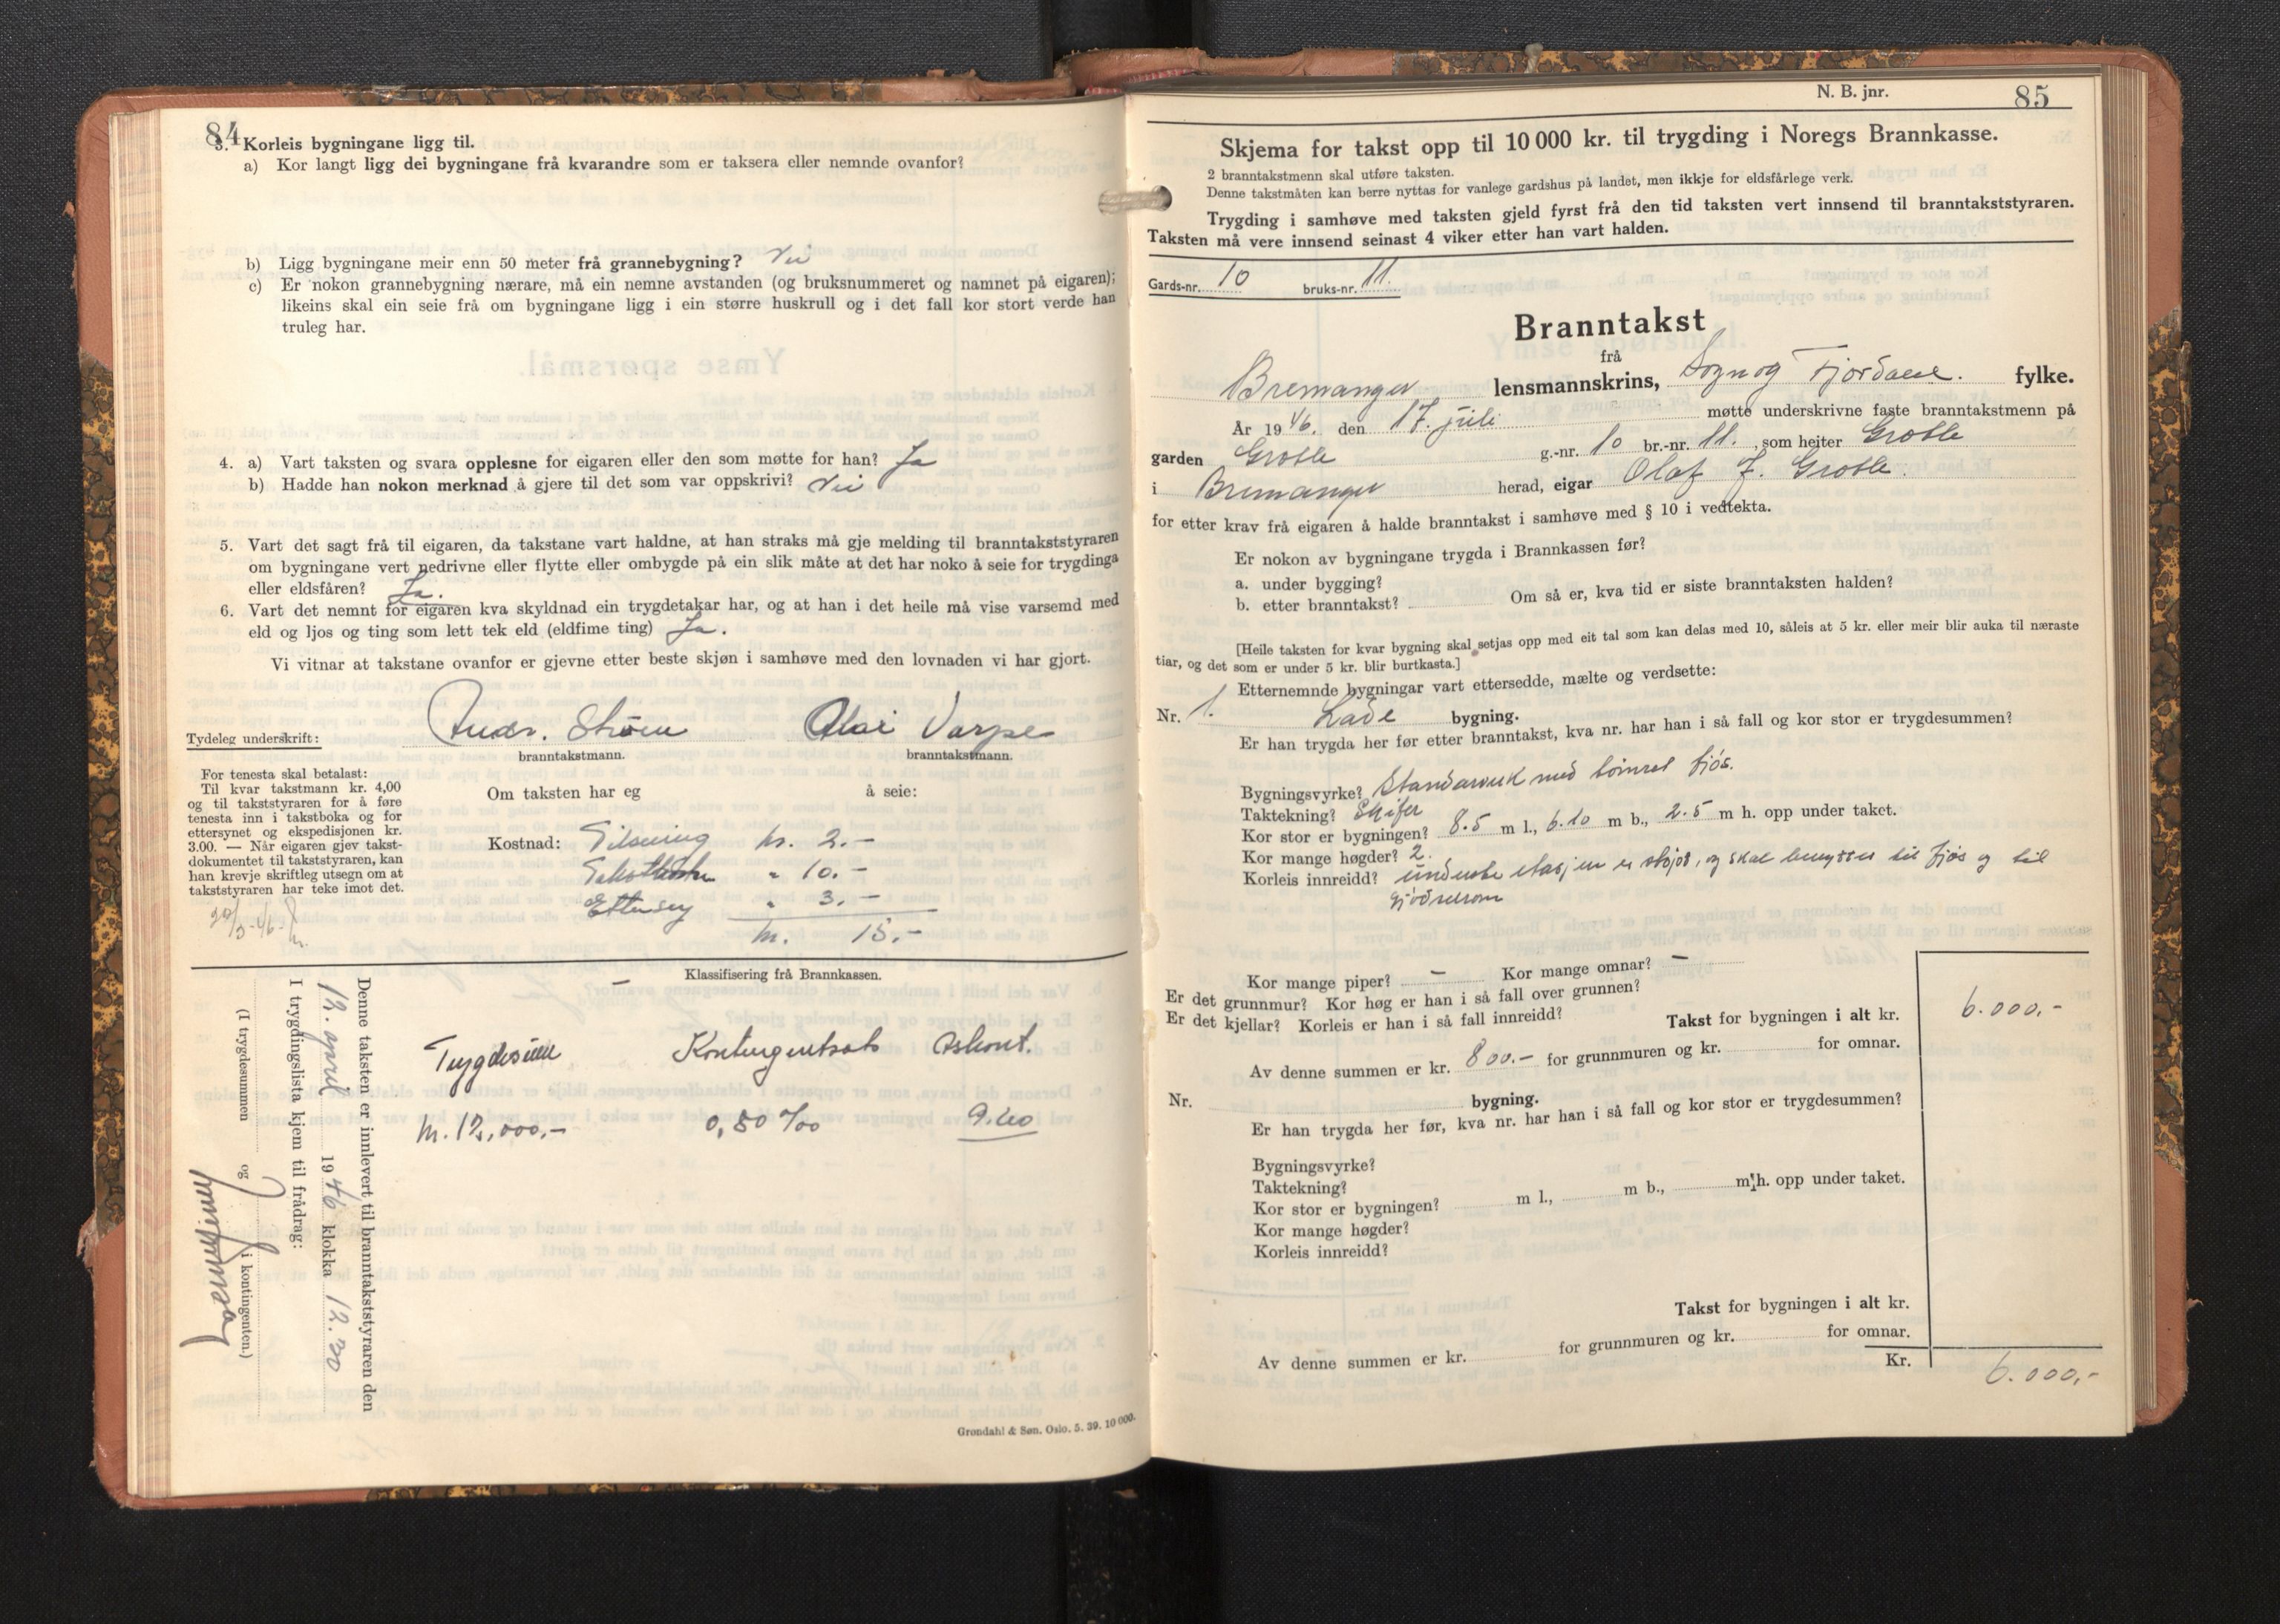 84
3. Korleis bygningane ligg til.
a) Kor langt ligg dei bygningane frå kvarandre som er taksera eller nemnde ovanfor?
b) Ligg bygningane meir enn 50 meter frå grannebygning? Nei
c) Er nokon grannebygning nærare, må ein nemne avstanden (og bruksnummeret og namnet på eigaren);
likeins skal ein seie frå om bygningane ligg i ein større huskrull og i det fall kor stort verde han
truleg har.
4. a) Vart taksten og svara opplesne for eigaren eller den som møtte for han? Ja
b) Hadde han nokon merknad å gjere til det som var oppskrivi? Nei
5. Vart det sagt frå til eigaren, da takstane vart haldne, at han straks må gje melding til branntakststyraren
om bygningane vert nedrivne eller flytte eller ombygde på ein slik måte at det har noko å seie for trygdinga
eller eldsfåren? Ja.
6. Vart det nemnt for eigaren kva skyldnad ein trygdetakar har, og at han i det heile må vise varsemd med
eld og ljos og ting som lett tek eld (eldfime ting) Ja.
Vi vitnar at takstane ovanfor er gjevne etter beste skjøn i samhøve med den lovnaden vi har gjort.
Tydeleg underskrift: Andr. Strøm Olai Varpe
branntakstmann. branntakstmann.
For tenesta skal betalast:
Til kvar takstmann kr. 4,00
og til takststyraren for å føre
tenesta inn i takstboka og for
ettersynet og ekspedisjonen kr.
3.00. — Når eigaren gjev takst-
dokumentet til takststyraren, kan
han krevje skriftleg utsegn om at
takststyraren har teke imot det.
Om taksten har eg å seie:
Kostnad: Tilseiing kr. 2.-
" 10.-
Ettersyn " 3.-
kr. 15.-
Klassifisering frå Brannkassen.
-
Trygdesum Kontingentsats Årskont.
kr. 12,000,- 0,80 ‰ 9.60
Denne taksten er innlevert til branntakststyraren den
12. april 1946 klokka 12.00
I trygdingslista kjem til frådrag:
(I trygdesummen og i kontingenten.)
Grøndahl & Søn. Oslo. 5. 39. 10 000.
N. B. jnr. 85
Skjema for takst opp til 10 000 kr. til trygding i Noregs Brannkasse.
2 branntakstmenn skal utføre taksten.
Denne takstmåten kan berre nyttas for vanlege gardshus på landet, men ikkje for eldsfårlege verk.
Trygding i samhøve med taksten gjeld fyrst frå den tid taksten vert innsend til branntakststyraren.
Taksten må vere innsend seinast 4 viker etter han vart halden.
Gards-nr. 10 bruks-nr. 11.
Branntakst
frå
Bremanger lensmannskrins, Sogn og Fjordane. fylke.
År 1946. den 17. juli møtte underskrivne faste branntakstmenn på
garden Grotle g.-nr. 10 br.-nr. 11. , som heiter Grotle
i Bremanger herad, eigar Olaf J. Grotle.
for etter krav frå eigaren å halde branntakst i samhøve med § 10 i vedtekta.
Er nokon av bygningane trygda i Brannkassen før?
a. under bygging?
b. etter branntakst? Om så er, kva tid er siste branntaksten halden?
[Heile taksten for kvar bygning skal setjas opp med eit tal som kan delas med 10, såleis at 5 kr. eller meir blir auka til næraste
tiar, og det som er under 5 kr. blir burtkasta.]
Etternemnde bygningar vart ettersedde, mælte og verdsette:
Nr. 1. Løde bygning.
Er han trygda her før etter branntakst, kva nr. har han i så fall og kor stor er trygdesummen?
Bygningsvyrke? Standarverk med tømret fjøs.
Taktekning? Skifer
Kor stor er bygningen? 8.5 m l., 6.10 m b., 2.5 m h. opp under taket.
Kor mange høgder? 2.
Korleis innreidd? underste etasjen er støpt, og skal benyttes til fjøs og til
gjødselrom
Kor mange piper? - Kor mange omnar? -
Er det grunnmur? Kor høg er han i så fall over grunnen?
Er det kjellar? Korleis er han i så fall innreidd?
Takst for bygningen i alt kr. 6.000,-
Av denne summen er kr. 800.- for grunnmuren og kr. for omnar.
Nr. bygning.
Er han trygda her før, kva nr. har han i så fall og kor stor er trygdesummen?
Bygningsvyrke?
Taktekning?
Kor stor er bygningen? m l., m b., m h. opp under taket.
Kor mange høgder?
Korleis innreidd?
Takst for bygningen i alt kr.
Av denne summen er kr. for grunnmuren og kr. for omnar.
Kr. 6.000,-